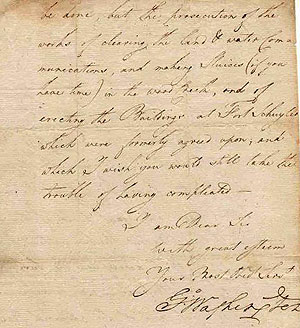 be done, but the prosecution of the
works of clearing the land & water Com=
munications, and making Sluices (if you
have time) in the wood Creek, and of
erecting the Buildings at Fort Schuyler
which were formerly agreed upon; and
which I wish you would still take the
trouble of having compleated—
I am Dear Sir
with great esteem
Your Most Obed Servt
Go Washington